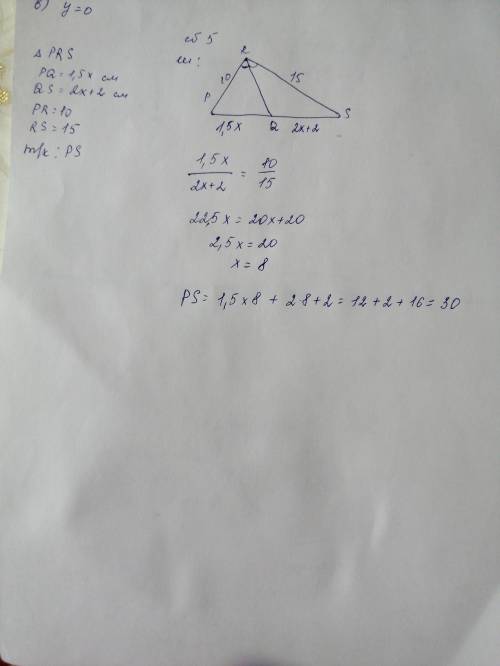 в) y=0
сб 5
Δ PRS
PQ=1,5x см
QS=2x+2 см
PR=10
RS=15
т/к: PS
ш:
R
10
15
P
S
1,5x
Q
2x+2
1,5x / 2x+2 = 10 / 15
22,5x = 20x+20
2,5x = 20
x = 8
PS = 1,5×8 + 2·8+2 = 12+2+16 = 30